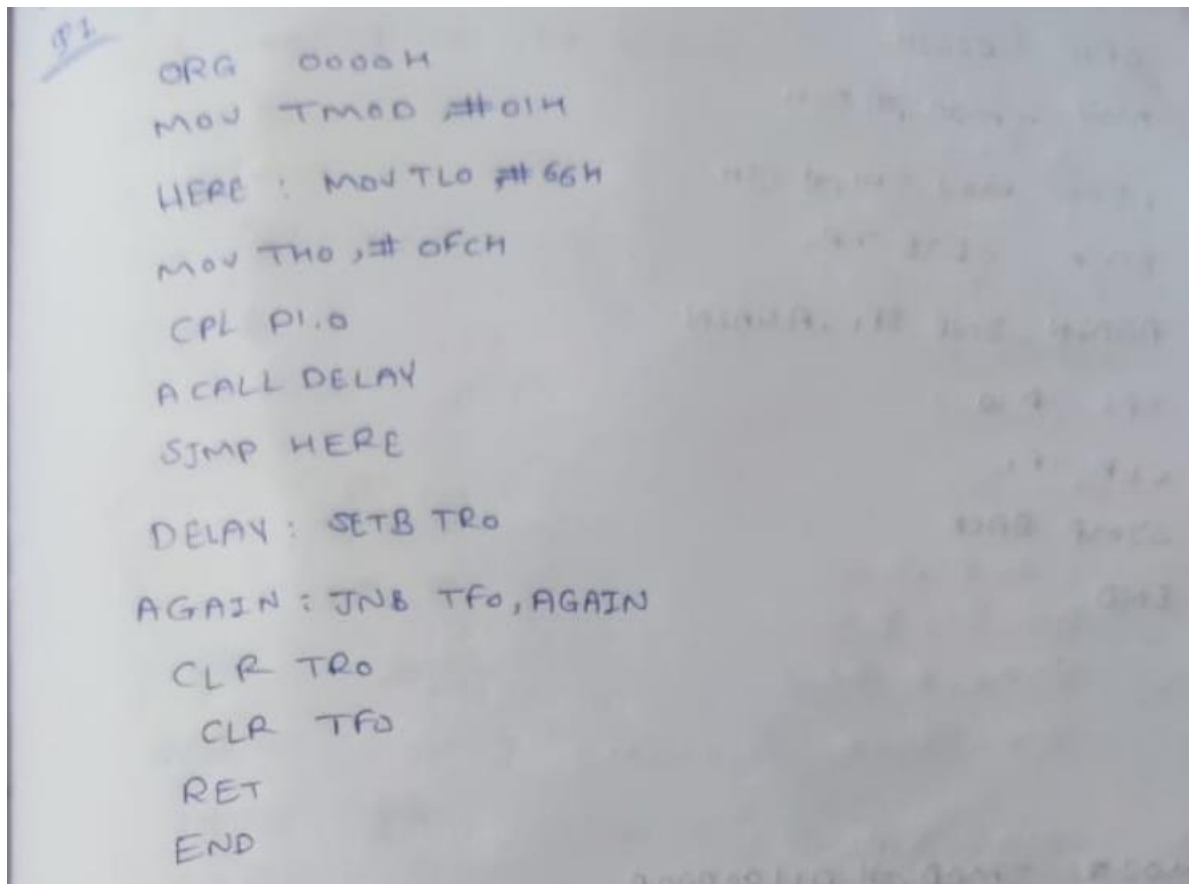 P1
ORG 0000H
MOV TMOD ,#01H
HERE : MOV TL0 ,#66H
MOV TH0 ,# 0FCH
CPL P1.0
ACALL DELAY
SJMP HERE
DELAY : SETB TR0
AGAIN : JNB TF0, AGAIN
CLR TR0
CLR TF0
RET
END